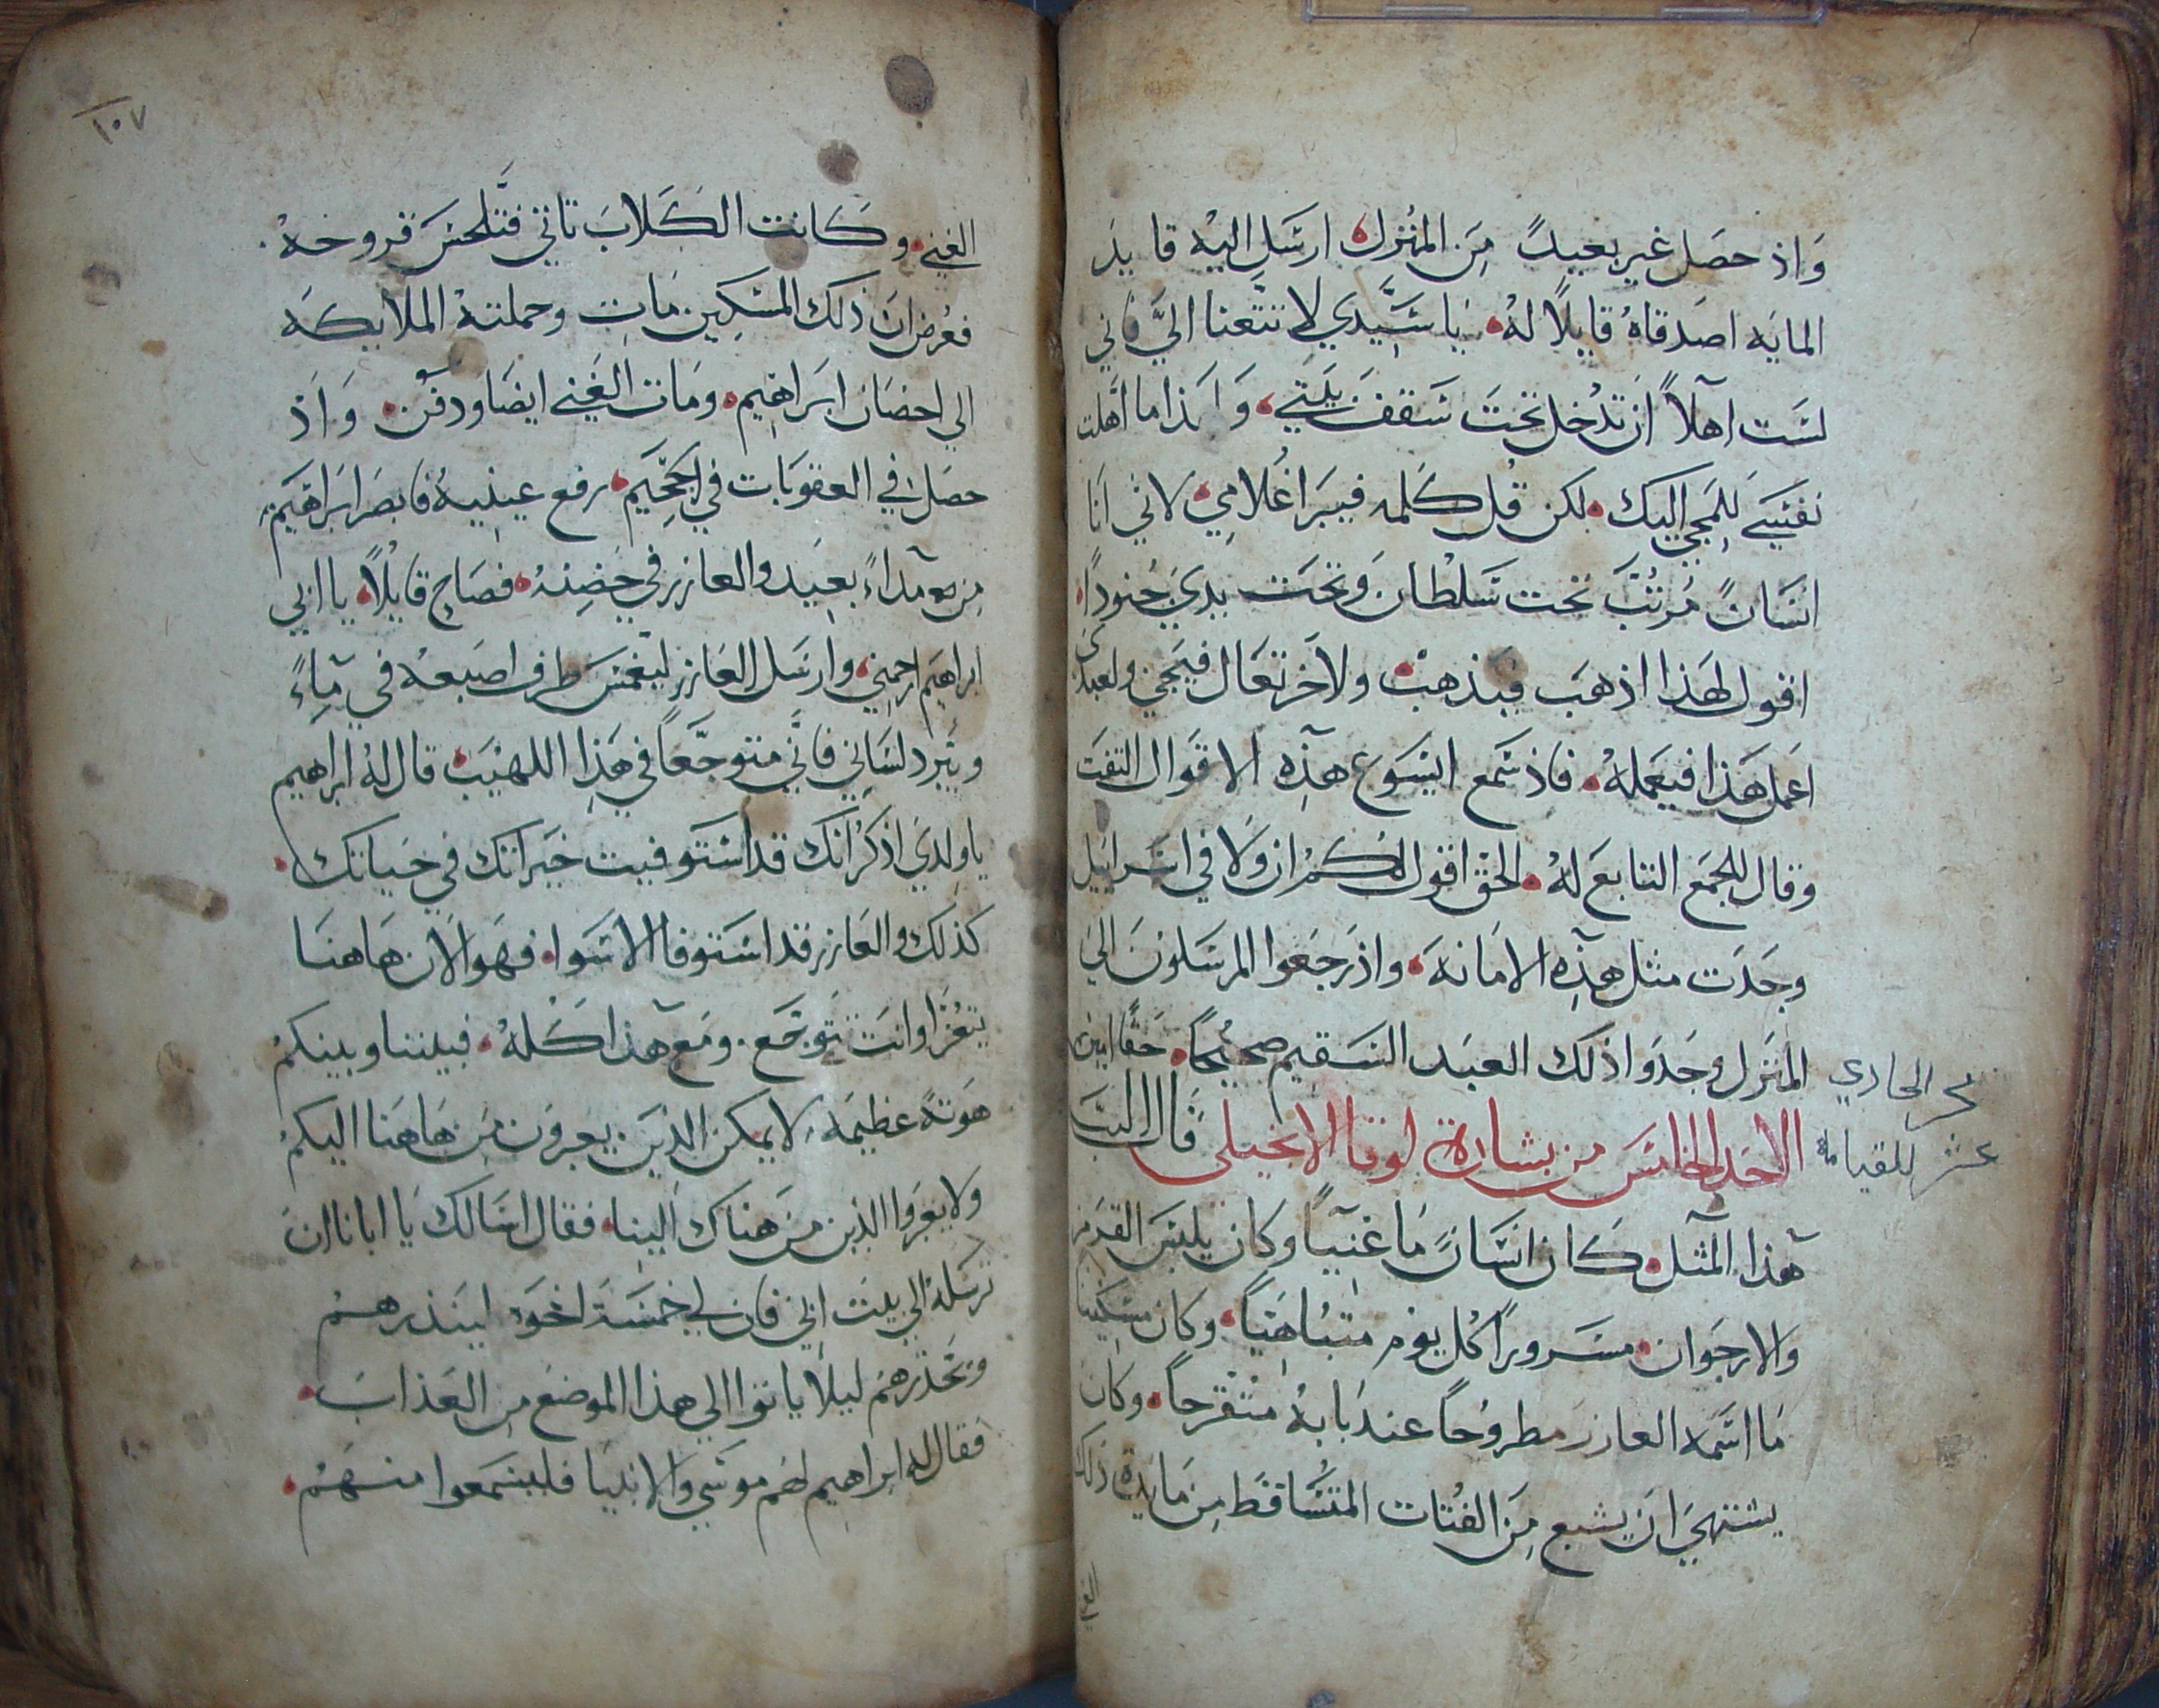 وَاذ حصَل غير بعيدً مِنَ المنُزل ارسَل اليْه قايدَ
المايَه اصَدقاهُ قايلًا لهُ يَا سَيِّدي لا تتَّعنا اليَّ فاني
لسَت آهلاً ان تدُخل تحتَ سَقفَ بَيتي وَلهذا ما اهَّلت
نفسَي للمَجي اليك لكن قُل كَلمه فيبَرا غُلامِي لاني انَا
انسَانً مُرتَّبً تحت سَلطْان وَتحتَ يدي جُنوداً
اقول لهَذا اذهبَ فيذهبْ ولاخَر تعَال فيَجي ولعبدَي
اعَمل هَذا فيَعملهُ فاذ سَمع ايسَوع هَذِه الاقوَال التفتَ
وقال للجمَع التابعَ لهُ الحَق اقول لكُمُ ان وَلا في اسَرايَيل
وجَدَت مثل هَذِه الامَانهَ واذ رَجَعوا المرسَلونَ الي
المنَزل وجَدَوا ذلك العبَد السَقيم صَحيْحاً حَقًا امين
نحـ الحادي
عشر للقيامة
الاحَد الخامسَ من بشارة لوقا الانجيلي قال الربَ
هَذا المثَل كَان انسَانً مَا غنيَاً وكان يلبسَ القرمز
والارجَوان مسَروراً كُل يوم متبُاهَيًا وكان مسَكينًا
مَا اسَمه العازر مطروحًا عند بَابهُ متقْرحاً وكان
يشتهيَ ان يشبع مِنَ الفُتات المتسَّاقط مِن مَايدة ذلك
الغني
١٠٧
الغني وكَانت الكَلابَ تاتي فتَّلحسَ قروحهْ
فعُرض ان ذلك المسَكِين مَات وحملتهْ الملايكَه
الي احضَان ابَراهِيم ومَات الغَني ايضَا ودفُن وَاذَ
حصَل في العقوبَات في الجَحَّيم رفع عينيهُ فابصَر ابَراهَيم
مِن مدآءً بعيَد والعازر في حِضِنهُ فصَاح قايْلًا يا ابي
ابراهيَم ارحمني وارسَل العَازر ليَغمسَ طرف اصَبعهُ في مآءً
ويَبرد لسَاني فانَّي متوجَّعاً في هَذا اللهيْبَ قال لهُ ابراهيم
ياولدي اذكُرانك قد اسَتوفيت خيَراتك في حَياتك
كذلك والعَازر قد اسَتوفا الاسَوا فهَو الاَن هَاهنا
يتعُزا وانتَ تتوجَّع ومَع هَذا كَلهُ فبيننا وبينكمْ
هَوتهً عظيمَه لا يمكن الذيَن يعبرون مِن هَاهَنا اليكمْ
ولا يعبَروا الذين منَ هناك الينا فقال اسَالك يَا ابانا ان
ترسَلهُ الي بيت ابي فان لي خمسَة اخوَه لينَذرهم
وَيحَذرهمَ ليلا ياتوا الي هذا الموضعَ من العَذابَ
فقال له ابراهيم لهَم موسَي وَالانبيَا فليسَمعوا منهمْ